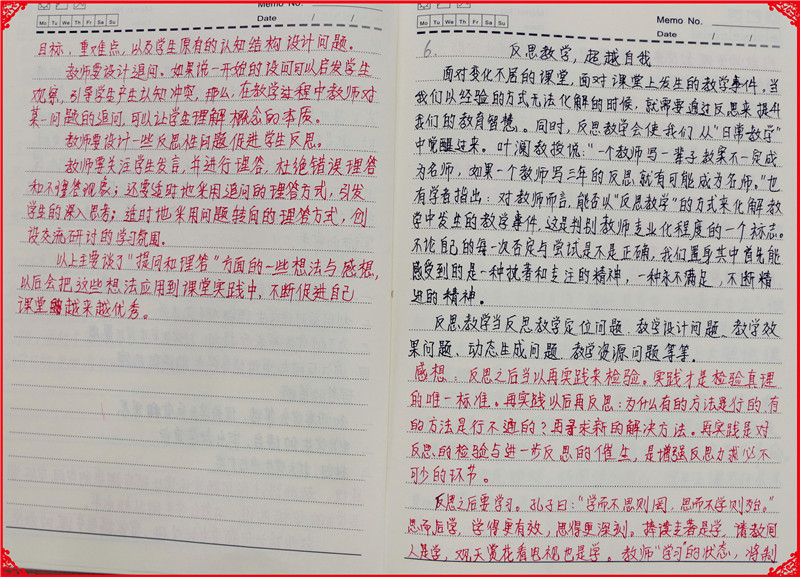 Memo No.
Mo Tu We Th Fr Sa Su
Date / /
目标，重难点，以及学生原有的认知结构设计问题。
教师要设计追问。如果说一开始的设问可以启发学生
观察，引导学生产生认知冲突，那么，在教学过程中教师对
某一问题的追问，可以让学生理解概念的本质。
教师要设计一些反思性问题促进学生反思。
教师要关注学生发言，并进行理答，杜绝错误理答
和不理答现象；还要适时地采用追问的理答方式，引发
学生的深入思考；适时地采用问题转向的理答方式，创
设交流研讨的学习氛围。
以上主要谈了“提问和理答”方面的一些想法与感想，
以后会把这些想法应用到课堂实践中，不断促进自己
课堂越来越优秀。
Memo No.
Mo Tu We Th Fr Sa Su
Date / /
6. 反思教学，超越自我
面对变化不居的课堂，面对课堂上发生的教学事件，当
我们以经验的方式无法化解的时候，就需要通过反思来提升
我们的教育智慧。同时，反思教学会使我们从“日常教学”
中觉醒过来。叶澜教授说：“一个教师写一辈子教案不一定成
为名师，如果一个教师写三年的反思就有可能成为名师。”也
有学者指出：对教师而言，能否以“反思教学”的方式来化解教
学中发生的教学事件，这是判别教师专业化程度的一个标志。
不论自己的每一次否定与尝试是不是正确，我们置身其中首先能
感受到的是一种执著和专注的精神，一种永不满足，不断精
进的精神。
反思教学当反思教学定位问题、教学设计问题、教学效
果问题、动态生成问题、教学资源问题等等。
感想：反思之后当以再实践来检验。实践才是检验真理
的唯一标准。再实践以后再反思：为什么有的方法是行的，有
的方法是行不通的？再寻求新的解决方法。再实践是对
反思的检验与进一步反思的催生，是增强反思力度必不
可少的环节。
反思之后要学习。孔子曰：“学而不思则罔，思而不学则殆。”
思而后学，学得更有效，思得更深刻。捧读专著是学，请教同
人是学，观天赏花看电视也是学。教师“学习”的状态，将制